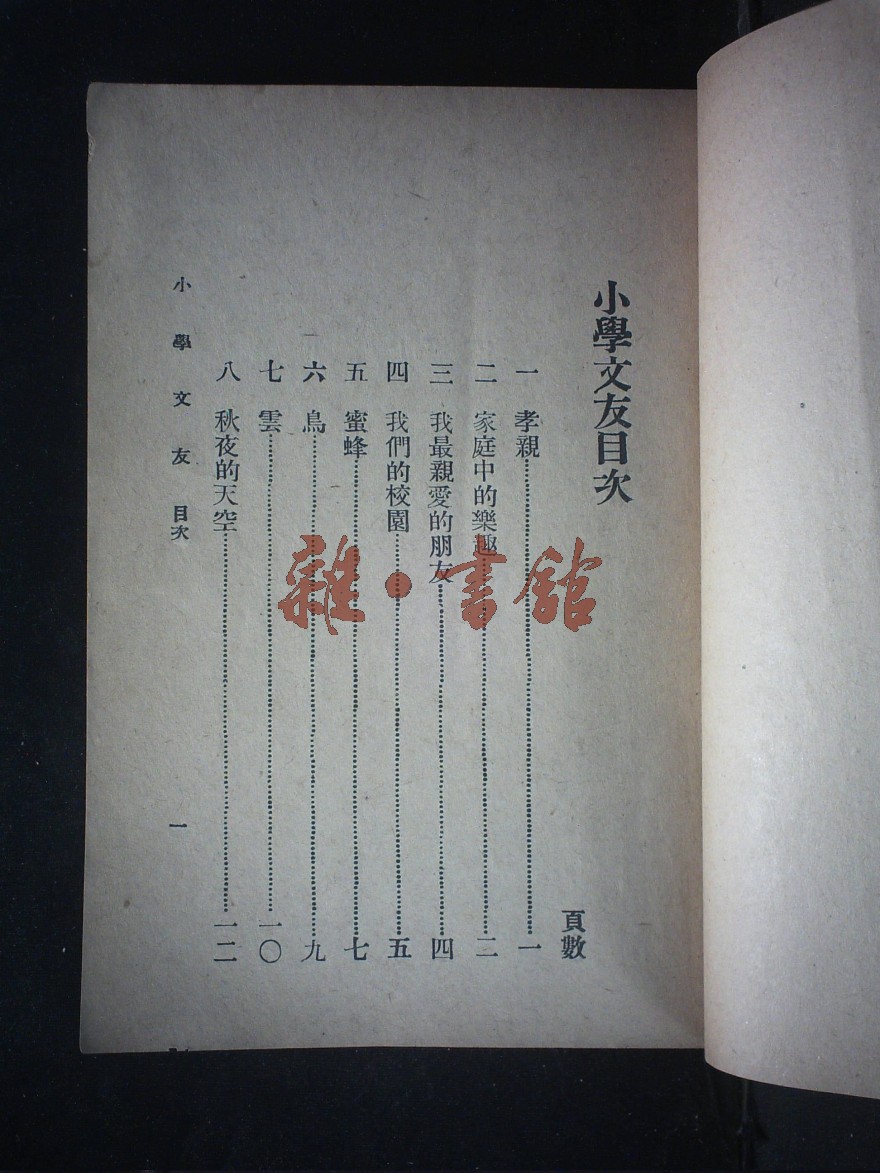 小學文友目次
頁數
一 孝親……一
二 家庭中的樂趣……二
三 我最親愛的朋友……四
四 我們的校園……五
五 蜜蜂……七
六 鳥……九
七 雲……一〇
八 秋夜的天空……一二
小學文友 目次 一
雜·書館